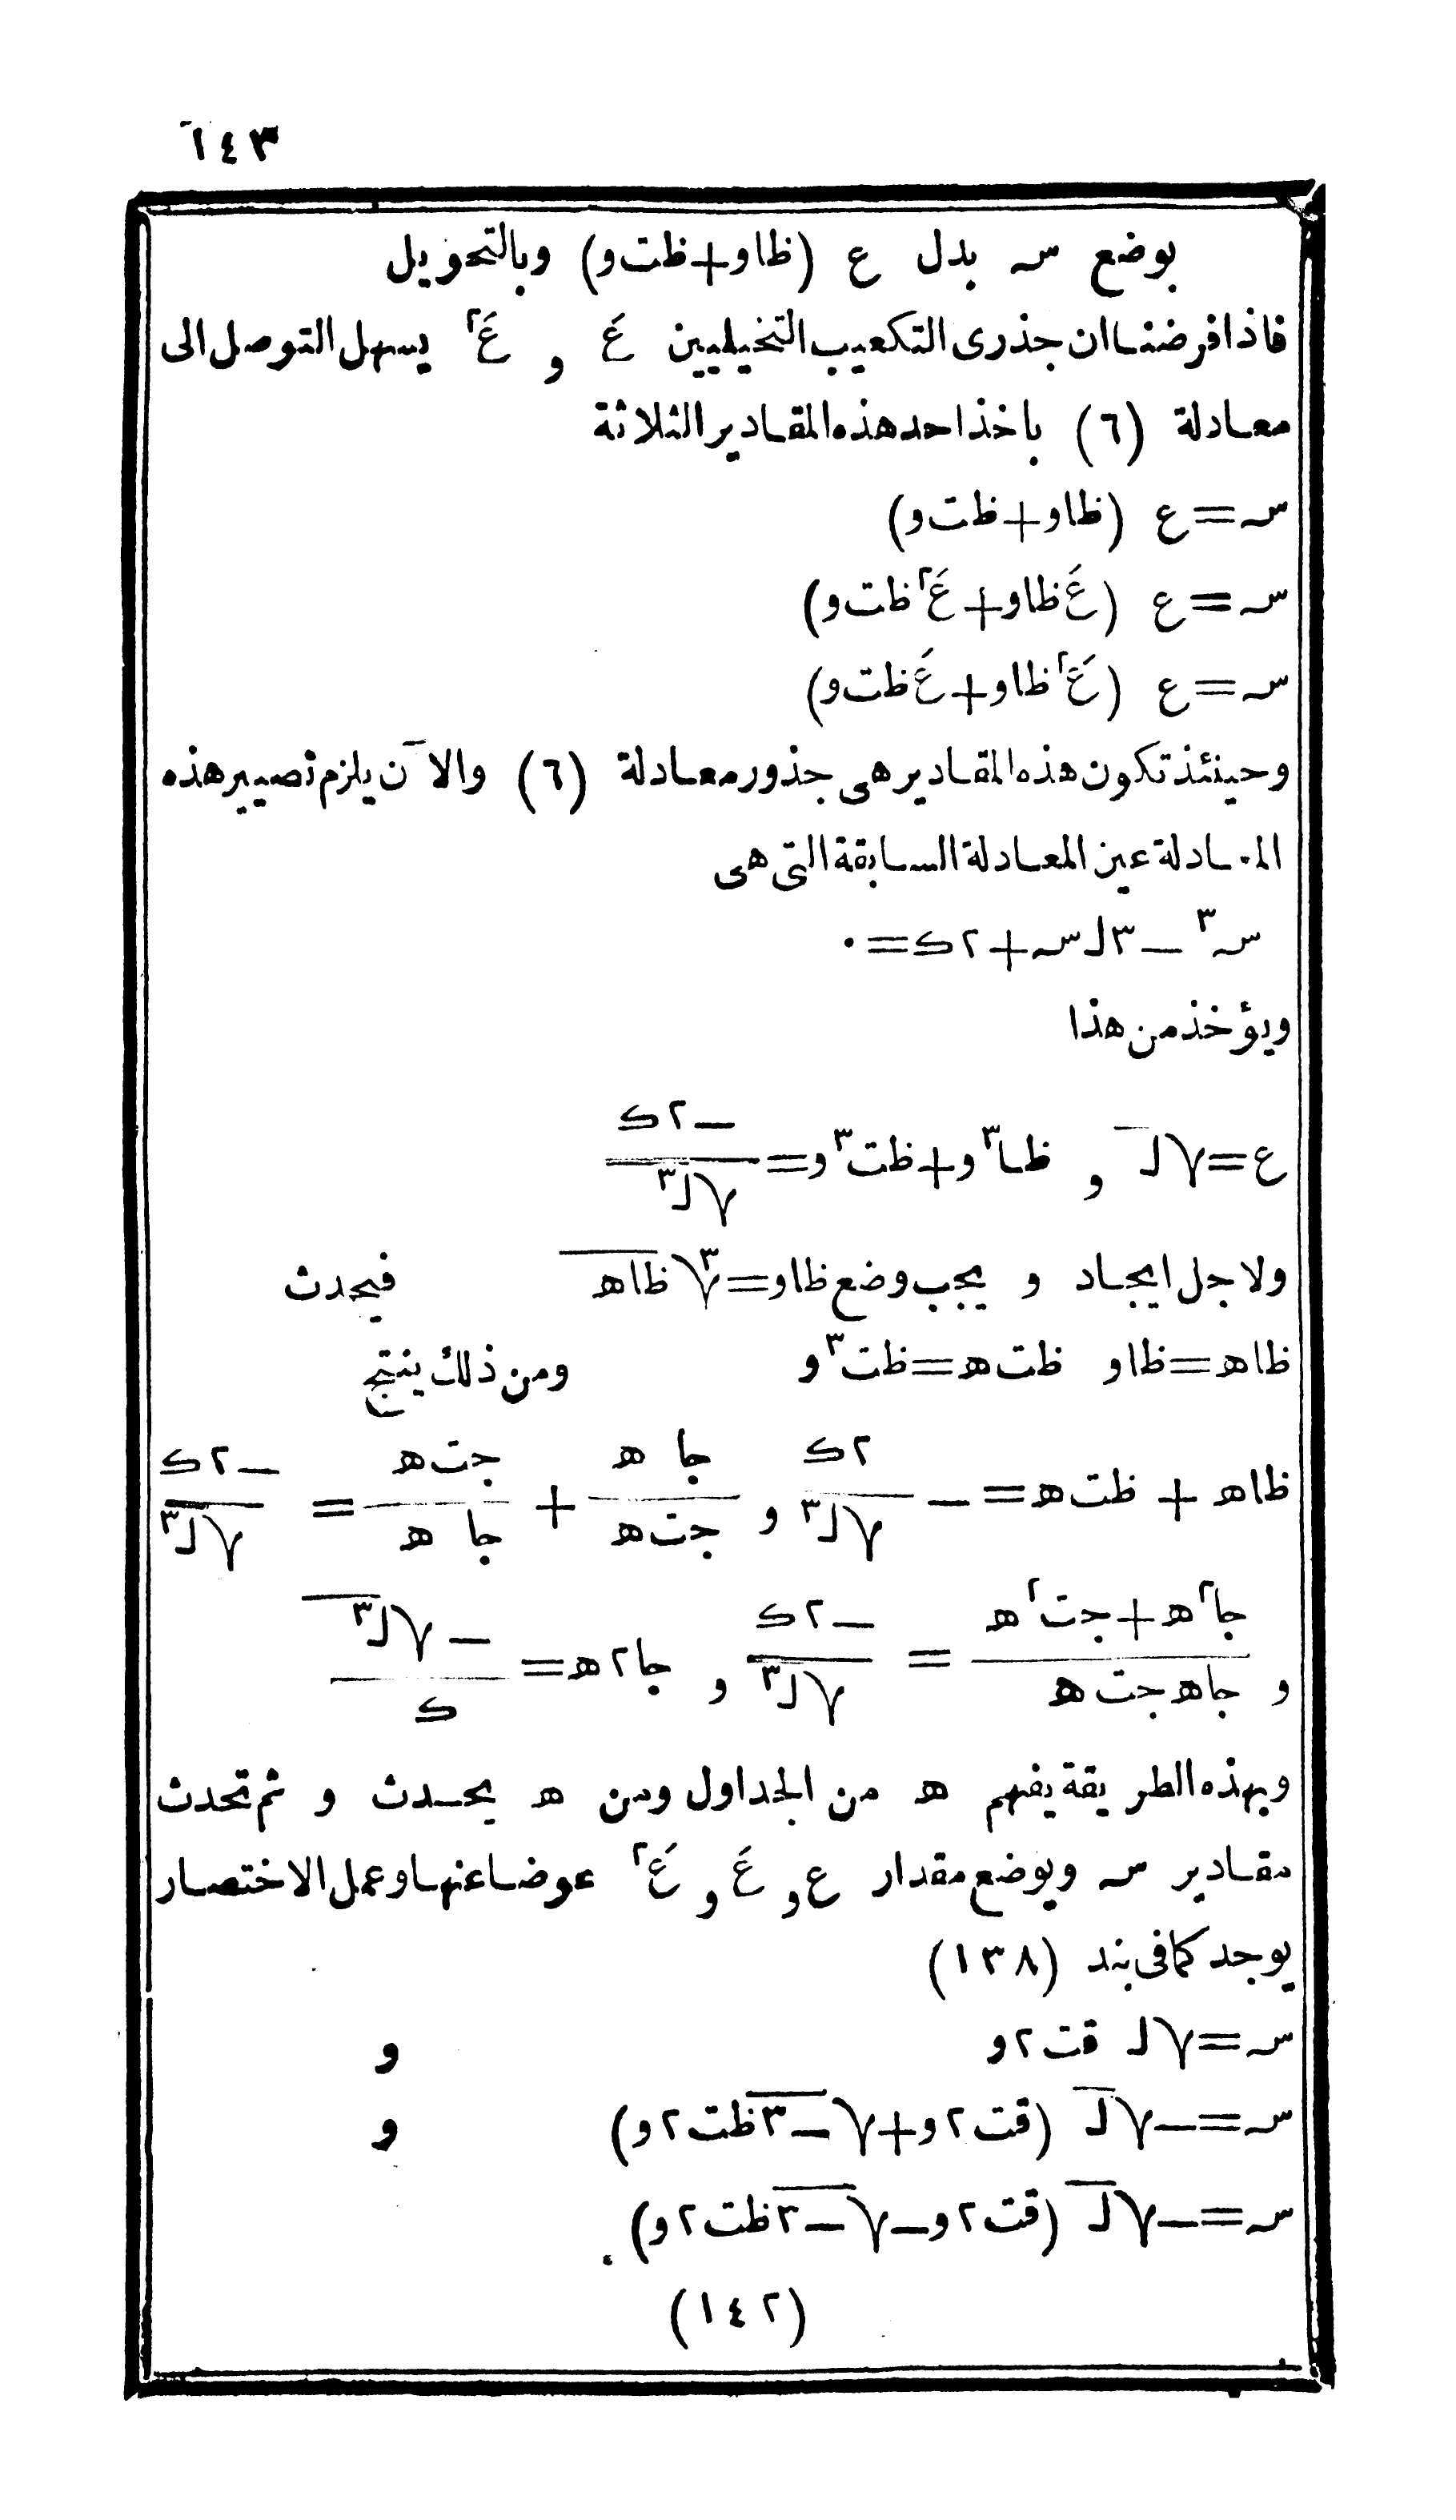 ١٤٣
بوضع س بدل ع (ظاو+ظتو) وبالتحويل
فاذا فرضنا ان جذرى التكعيب التخيليين عَ و عَ٢ يسهل التوصل الى
معادلة (٦) باخذ احد هذه المقادير الثلاثة
س=ع (ظاو+ظتو)
س=ع (عَظاو+عَ٢ظتو)
س=ع (عَ٢ظاو+عَظتو)
وحينئذ تكون هذه المقادير هى جذور معادلة (٦) والآن يلزم تصيير هذه
المعادلة عين المعادلة السابقة التى هى
س٣ – ٣ل س+٢ك=٠
ويؤخذ من هذا
ع=√ل و ظا٣و+ظت٣و=–٢ك/√ل٣
ولاجل ايجاد و يجب وضع ظاو=∛ظاھ فيحدث
ظاھ=ظاو ظتھ=ظت٣و ومن ذلك ينتج
ظاھ + ظتھ=–٢ك/√ل٣ و جاھ/جتھ + جتھ/جاھ = –٢ك/√ل٣
و جا٢ھ+جت٢ھ/جاھجتھ = –٢ك/√ل٣ و جا٢ھ=–√ل٣/ك
وبهذه الطريقة يفهم ھ من الجداول ومن ھ يحدث و ثم تحدث
مقادير س ويوضع مقدار ع و عَ و عَ٢ عوضا عنها وعمل الاختصار
يوجد كما فى بند (١٣٨)
س=√ل قت٢و و
س=–√ل (قت٢و+√–٣ظت٢و) و
س=–√ل (قت٢و–√–٣ظت٢و).
(١٤٢)